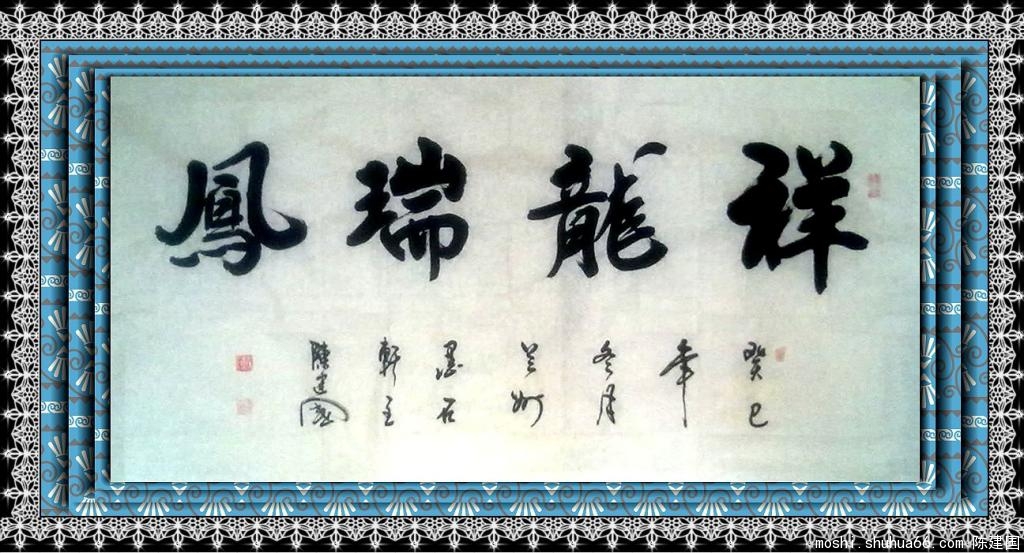 祥龍瑞鳳
癸巳
年
冬月
兰州
墨石
軒主
陳建國
moshi.shuhua66.com 陈建国